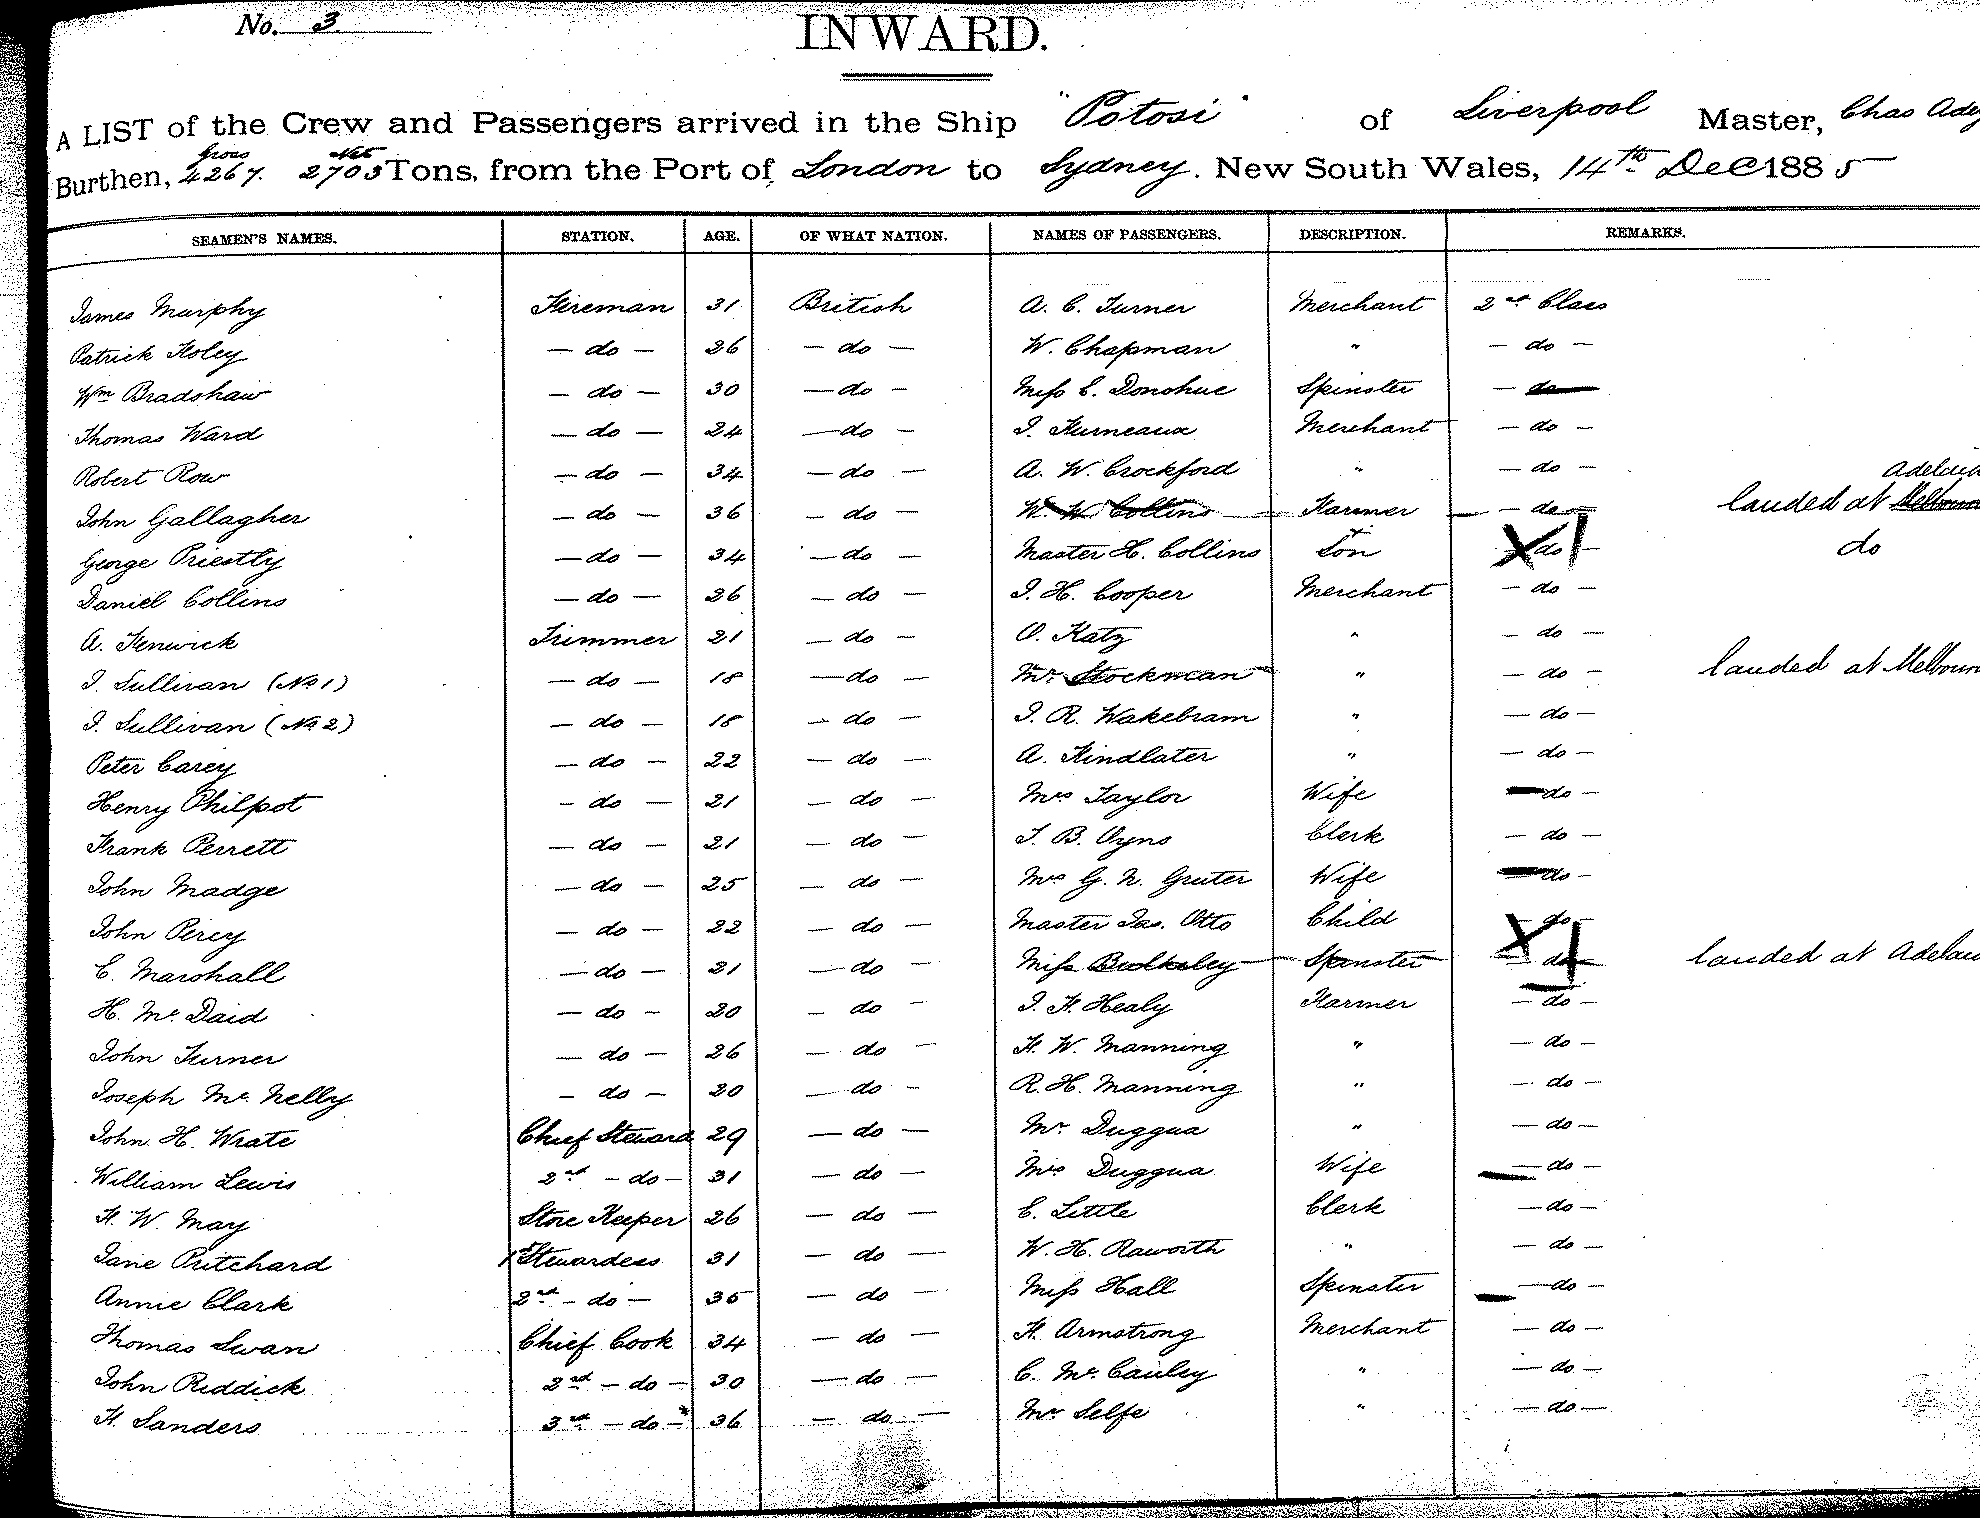 No. 3.
INWARD.
A LIST of the Crew and Passengers arrived in the Ship "Potosi" of Liverpool Master, Chas
Burthen, Gross 4267. Net 2703 Tons, from the Port of London to Sydney. New South Wales, 14th Dec 1885
SEAMEN'S NAMES. STATION. AGE. OF WHAT NATION. NAMES OF PASSENGERS. DESCRIPTION. REMARKS.
James Murphy Fireman 31 British A. C. Turner Merchant 2nd Class
Patrick Foley — do — 26 — do — W. Chapman " — do —
Wm Bradshaw — do — 30 — do — Miss C. Donohue Spinster — do —
Thomas Ward — do — 24 — do — J. Furneaux Merchant — do —
Robert Row — do — 34 — do — A. W. Crockford " — do —
John Gallagher — do — 36 — do — W. W Collins Farmer — do — landed at Melbourne Adelaide
George Priestly — do — 34 — do — Master H. Collins Son — do — do
Daniel Collins — do — 26 — do — J. H. Cooper Merchant — do —
A. Fenwick Trimmer 21 — do — O. Katz " — do —
J. Sullivan (No 1) — do — 18 — do — Mr. Stockman " — do — landed at Melbourn
J. Sullivan (No 2) — do — 18 — do — J. R. Wakebram " — do —
Peter Carey — do — 22 — do — A. Findlater " — do —
Henry Philpot — do — 21 — do — Mrs Taylor Wife — do —
Frank Perrett — do — 21 — do — T. B. Vyns Clerk — do —
John Madge — do — 25 — do — Mrs G. N. Gruter Wife — do —
John Percy — do — 22 — do — Master Jas. Otto Child — do —
C. Marshall — do — 21 — do — Miss Bulkeley Spinster — do — landed at Adelai
H. Mc. Daid — do — 20 — do J. F. Healy Farmer — do —
John Turner — do — 26 — do — F. W. Manning " — do —
Joseph Mc. Nelly — do — 20 — do — R. H. Manning " — do —
John H. Wrate Chief Steward 29 — do — Mr. Duggua " — do —
William Lewis 2nd — do — 31 — do — Mrs Duggua Wife — do —
F. W. May Store Keeper 26 — do — C. Little Clerk — do —
Jane Pritchard 1st Stewardess 31 — do — W. H. Raworth " — do —
Annie Clark 2nd — do — 35 — do — Miss Hall Spinster — do —
Thomas Swan Chief Cook 34 — do — F. Armstrong Merchant — do —
John Riddick 2nd — do — 30 — do — C. Mc. Cauley " — do —
F. Sanders 3rd — do — 36 — do — Mr Selfe " — do —